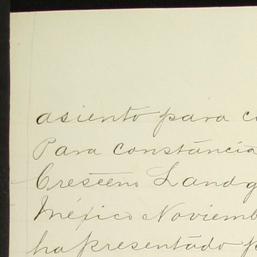 asiento para c
Para constancia
Cresceno Landg
México Noviemb
ha presentado p